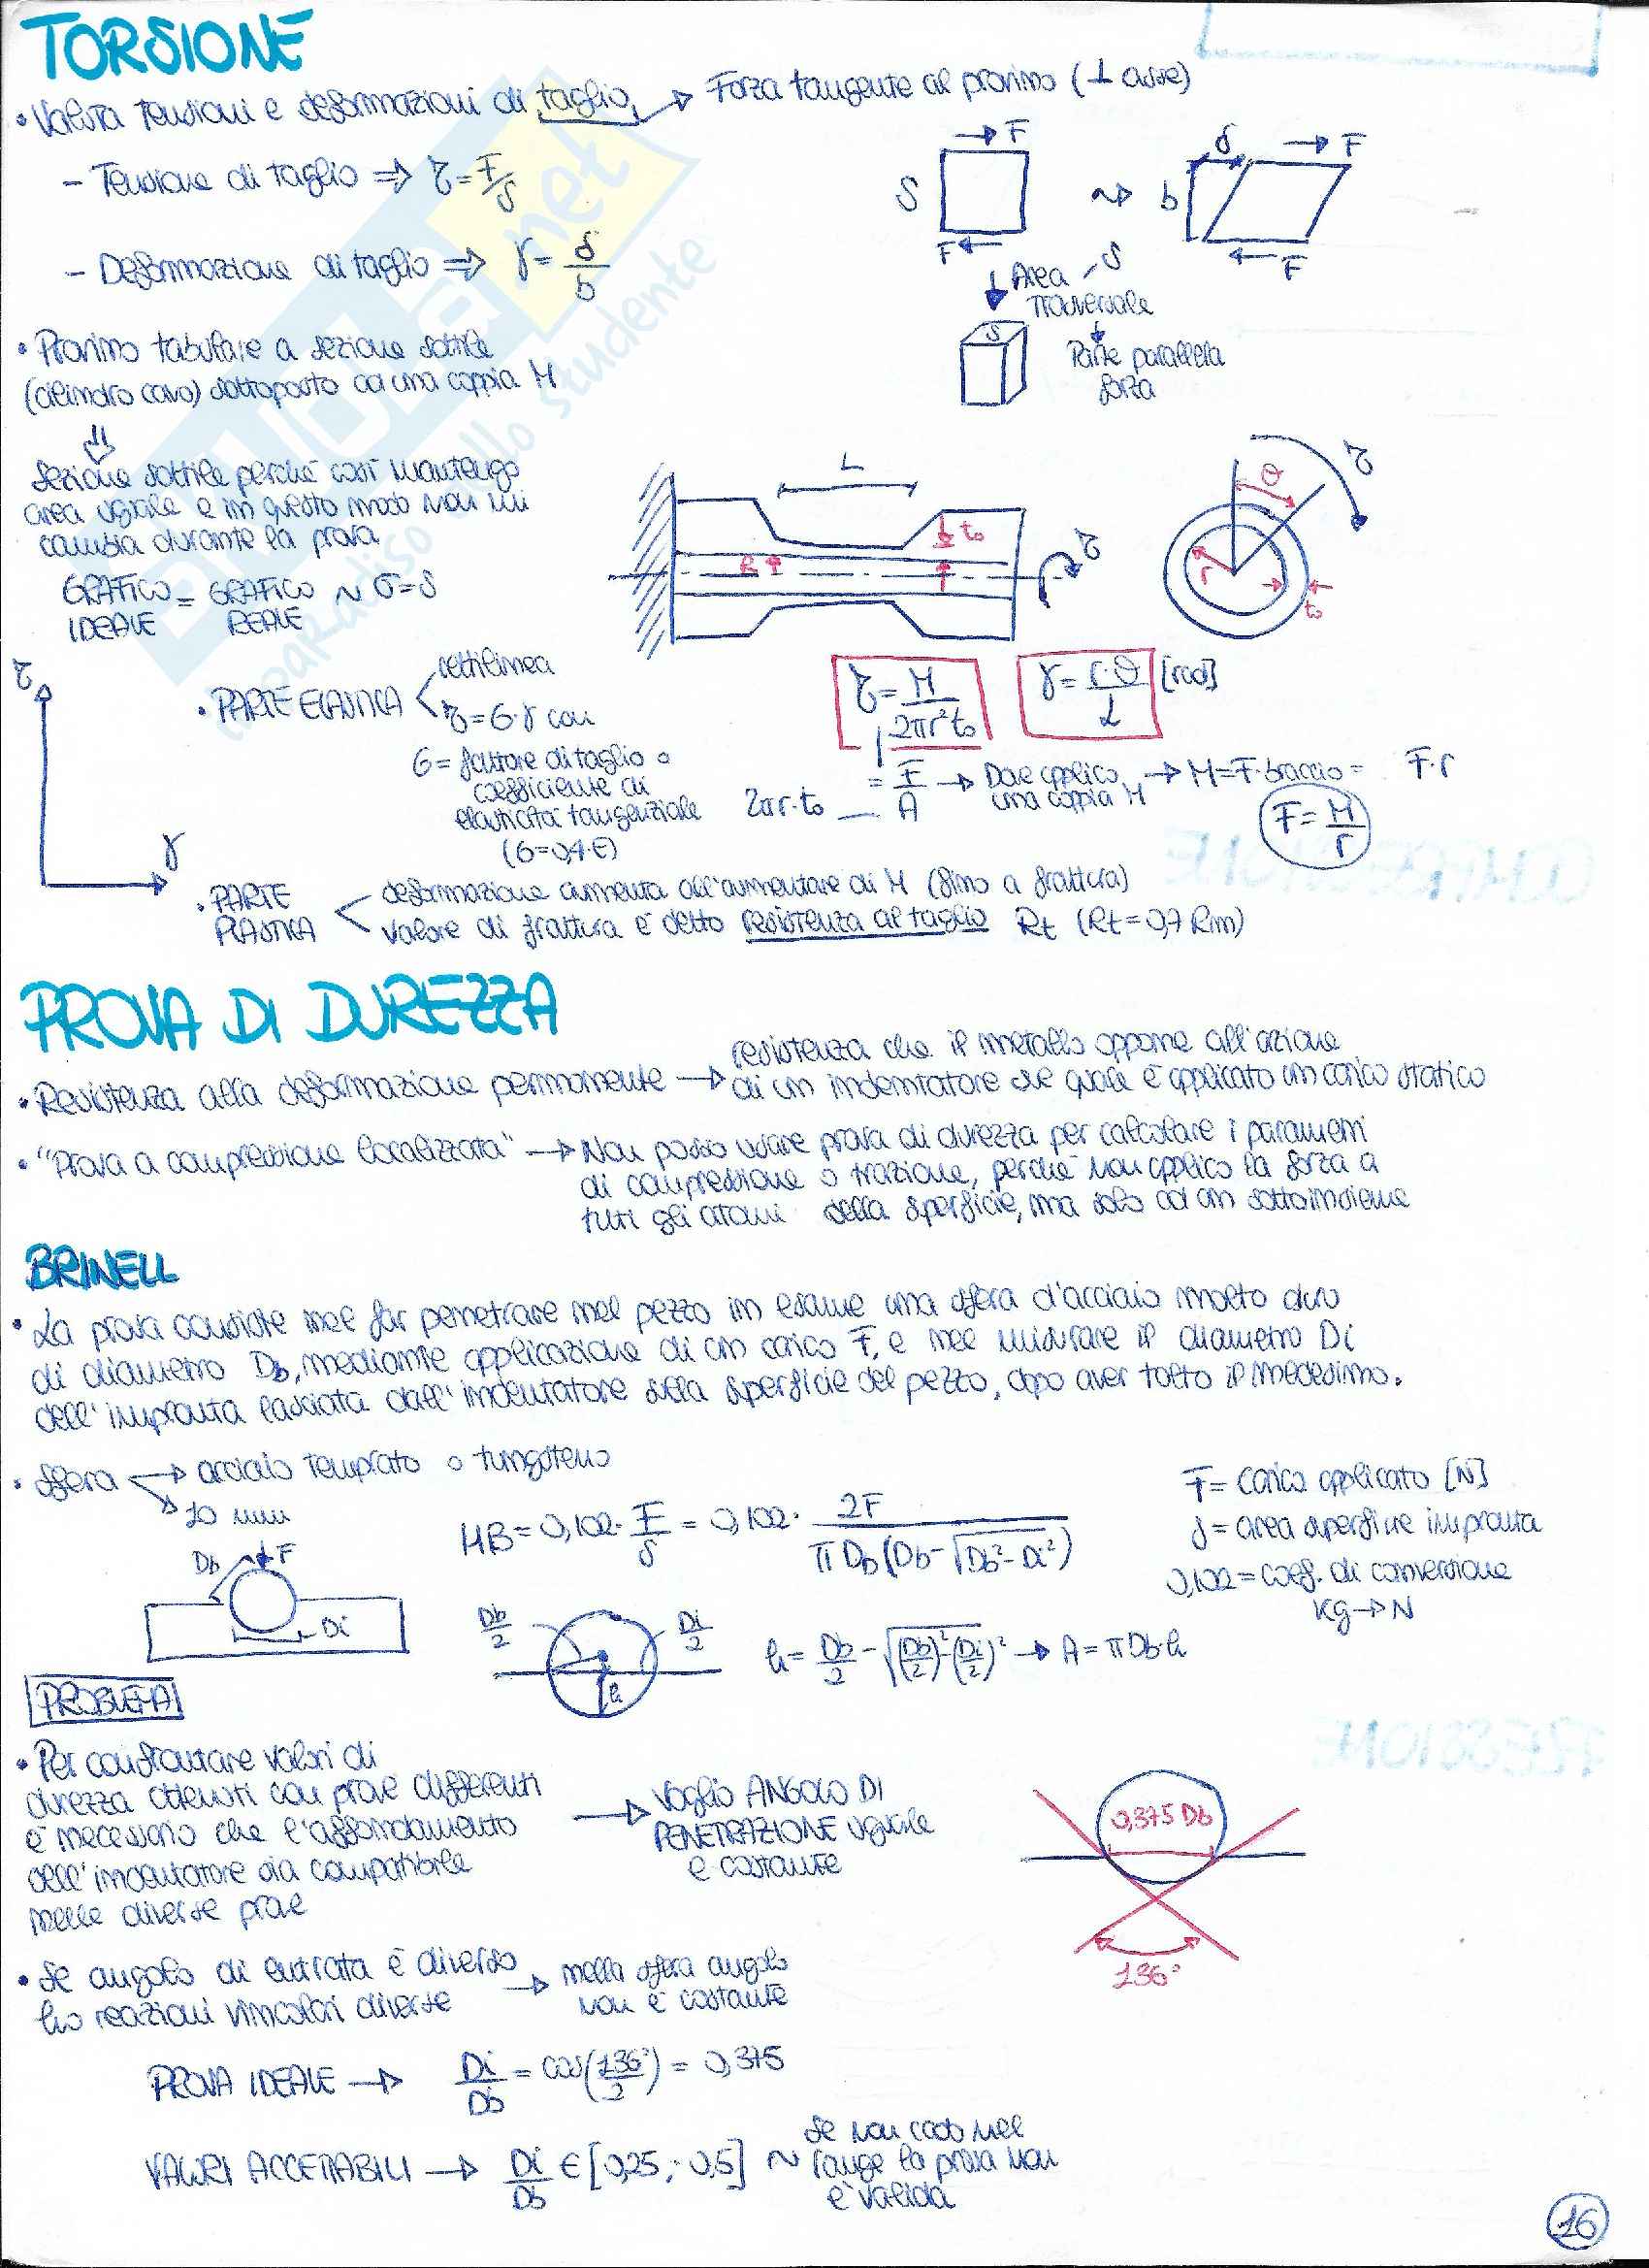 TORSIONE
• Valuta tensioni e deformazioni di taglio → Forza tangente al provino (⊥ asse)
- Tensione di taglio ⇒ τ = F/S
- Deformazione di taglio ⇒ γ = δ/b
F
S
F
δ
F
b
F
Area S
trasversale
S
Parte parallela
forza
• Provino tubulare a sezione sottile
(cilindro cavo) sottoposto ad una coppia M
Sezione sottile perché così mantengo
area uguale e in questo modo non mi
cambia durante la prova
GRAFICO = GRAFICO ~ σ=S
IDEALE REALE
L
R
to
τ
θ
τ
r
to
τ
γ
• PARTE ELASTICA
rettilinea
τ = G·γ con
G = fattore di taglio o
coefficiente di
elasticità tangenziale
(G=0,4·E)
τ = M/2πr²to
γ = r·θ/L [rad]
= F/A → Dove applico una coppia M → M = F·braccio = F·r
2πr·to
F = M/r
• PARTE PLASTICA
deformazione aumenta all'aumentare di M (fino a frattura)
valore di frattura è detto resistenza al taglio Rt (Rt=0,7 Rm)
PROVA DI DUREZZA
• Resistenza alla deformazione permanente → resistenza che il metallo oppone all'azione
di un indentatore al quale è applicato un carico statico
• "Prova a compressione localizzata" → Non posso usare prova di durezza per calcolare i parametri
di compressione o trazione, perché non applico la forza a
tutti gli atomi della superficie, ma solo ad un sottoinsieme
BRINELL
• La prova consiste nel far penetrare nel pezzo in esame una sfera d'acciaio molto duro
di diametro Db, mediante applicazione di un carico F, e nel misurare il diametro Di
dell'impronta lasciata dall'indentatore sulla superficie del pezzo, dopo aver tolto il medesimo.
• Sfera → acciaio temprato o tungsteno
→ 10 mm
HB = 0,102 · F/S = 0,102 · 2F/πDb(Db-√Db²-Di²)
F = carico applicato [N]
S = area superficie impronta
0,102 = coeff. di conversione
kg → N
Db
F
Di
Db/2
Di/2
h
h = Db/2 - √(Db/2)²-(Di/2)² → A = πDb·h
PROBLEMA
• Per confrontare valori di
durezza ottenuti con prove differenti
è necessario che l'affondamento
dell'indentatore sia compatibile
nelle diverse prove
→ Voglio ANGOLO DI
PENETRAZIONE uguale
e costante
0,375 Db
136°
• Se angolo di entrata è diverso
ho reazioni vincolari diverse
→ nella sfera angolo
non è costante
PROVA IDEALE → Di/Db = cos(136°/2) = 0,375
VALORI ACCETTABILI → Di/Db ∈ [0,25 ; 0,5] ~ se non cado nel
range la prova non
è valida
16